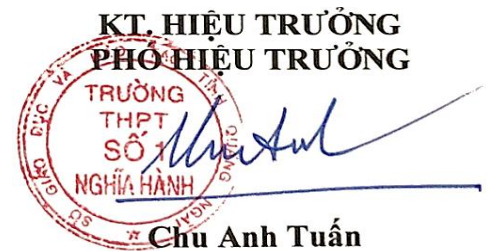 KT. HIỆU TRƯỞNG
PHÓ HIỆU TRƯỞNG
SỞ GIÁO DỤC VÀ ĐÀO TẠO TỈNH QUẢNG NGÃI
TRƯỜNG
THPT
SỐ 1
NGHĨA HÀNH
Chu Anh Tuấn